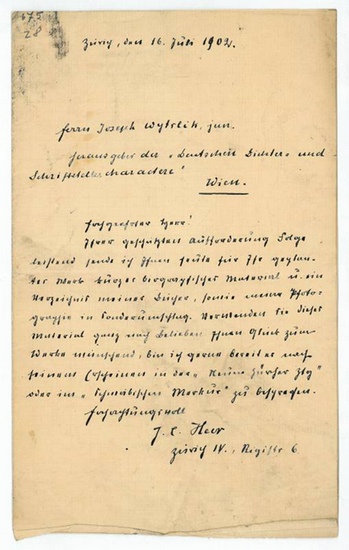 675
28
Zürich, den 16. Juli 1902.
Herrn Joseph Wytrlik, jun.
Herausgeber der „Deutschen Dichter- und
Schriftsteller charactere"
Wien.
Hochgeehrter Herr!
Ihrer geschätzten Aufforderung Folge
leistend sende ich Ihnen heute für Ihr geplan-
tes Werk kurzes biographisches Material u. ein
Verzeichnis meiner Bücher, sowie meine Photo-
graphie in Sonderumschlag. Verwenden Sie dieses
Material ganz nach Belieben. Ihnen Glück zum
Werke wünschend, bin ich gerne bereit es nach
seinem Erscheinen in der „Neuen Zürcher Ztg"
oder im „Schwäbischen Merkur" zu besprechen.
Hochachtungsvoll
J. C. Heer
Zürich IV., Rigistr 6